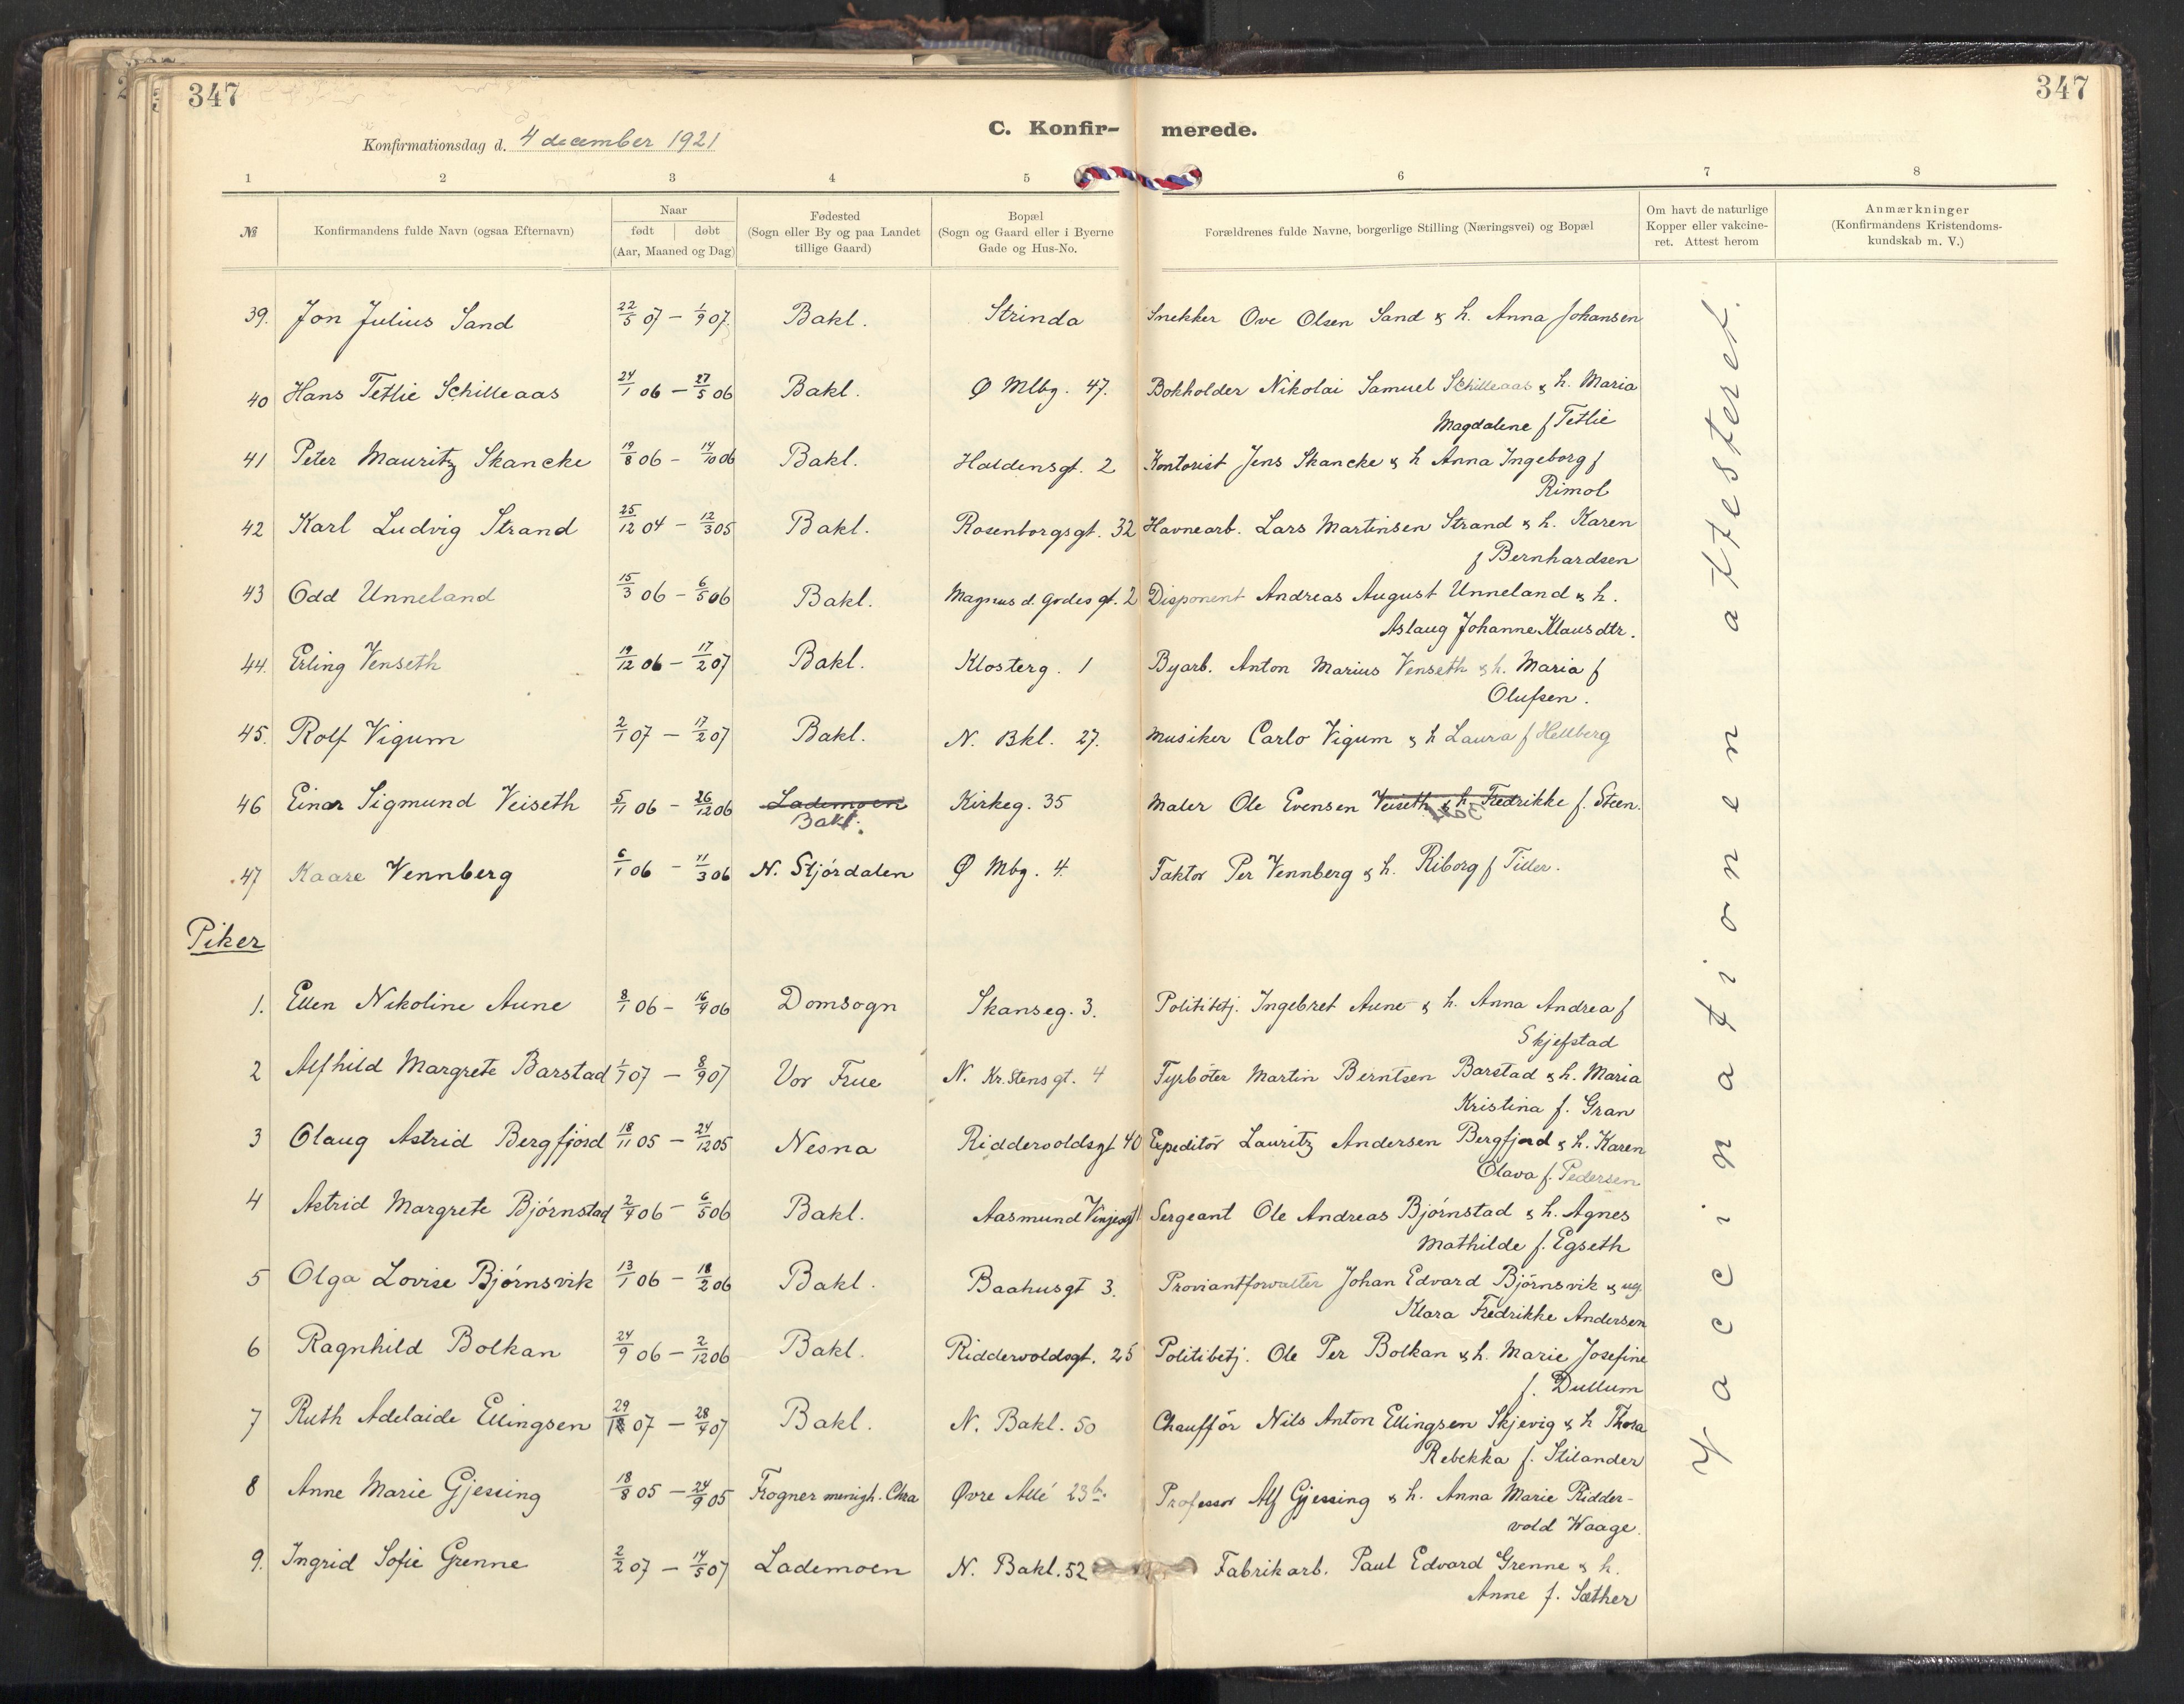 347
347
C. Konfir- merede.
Konfirmationsdag d. 4 december 1921
1 2 3 4 5 6 7 8
№ Konfirmandens fulde Navn (ogsaa Efternavn) Naar født døbt (Aar, Maaned og Dag) Fødested (Sogn eller By og paa Landet tillige Gaard) Bopæl (Sogn og Gaard eller i Byerne Gade og Hus-No. Forældrenes fulde Navne, borgerlige Stilling (Næringsvei) og Bopæl Om havt de naturlige Kopper eller vakcineret. Attest herom Anmærkninger (Konfirmandens Kristendomskundskab m. V.)
39. Jon Julius Sand 22/5 07 - 1/9 07. Bakl. Strinda Snekker Ove Olsen Sand & h. Anna Johansen
40 Hans Tetlie Schilleaas 24/1 06 - 27/5 06 Bakl. Ø Mlbg. 47. Bokholder Nikolai Samuel Schilleaas & h. Maria
Magdalene f Tetlie
41 Peter Mauritz Skancke 19/8 06 - 14/10 06 Bakl. Haldensgt. 2 Kontorist Jens Skancke & h Anna Ingeborg f
Rimol
42 Karl Ludvig Strand 25/12 04 - 12/3 05 Bakl. Rosenborgsgt. 32 Havnearb. Lars Martinsen Strand & h. Karen
f Bernhardsen
43 Odd Unneland 15/3 06 - 6/5 06 Bakl. Magnus d. Godes gt. 2 Disponent Andreas August Unneland & h.
Aslaug Johanne Klausdtr.
44. Erling Venseth 19/12 06 - 17/2 07 Bakl. Klosterg. 1 Byarb. Anton Marius Venseth & h. Maria f
Olufsen.
45. Rolf Vigum 2/1 07 - 17/2 07 Bakl. N. Bkl. 27. Musiker Carlo Vigum & h Laura f Hellberg
46 Einar Sigmund Veiseth 5/11 06 - 26/12 06 Lademoen Kirkeg. 35 Maler Ole Evensen Veiseth & h. Fredrikke f. Steen.
Bakl.
47 Kaare Vennberg 6/1 06 - 11/3 06 N. Stjørdalen Ø Mbg. 4. Faktor Per Vennberg & h. Riborg f Tiller.
Piker
1. Ellen Nikoline Aune 8/1 06 - 16/4 06 Domsogn Skanseg. 3. Politibtj. Ingebret Aune & h. Anna Andrea f
Skjefstad
2 Alfhild Margrete Barstad 1/7 07 - 8/9 07 Vor Frue N. Kr.Stensgt. 4 Fyrbøter Martin Berntsen Barstad & h. Maria
Kristina f. Gran
3 Olaug Astrid Bergfjord 18/11 05 - 24/12 05 Nesna Riddervoldsgt 40 Expeditør Lauritz Andersen Bergfjord & h. Karen
Olava f. Pedersen
4 Astrid Margrete Bjørnstad 2/4 06 - 6/5 06 Bakl. Aasmund Vinjesgt 1 Sergeant Ole Andreas Bjørnstad & h. Agnes
Mathilde f. Egseth
5 Olga Lovise Bjørnsvik 13/1 06 - 18/2 06 Bakl. Baahusgt 3. Proviantforvalter Johan Edvard Bjørnsvik & ug.
Klara Fredrikke Andersen
6 Ragnhild Bolkan 24/9 06 - 2/12 06 Bakl. Riddervoldsgt. 25 Politibetj. Ole Per Bolkan & h. Marie Josefine
f. Dullum
7 Ruth Adelaide Ellingsen 29/1 07 - 28/4 07 Bakl. N. Bakl. 50 Chauffør Nils Anton Ellingsen Skjevig & h Thora
Rebekka f. Stilander
8 Anne Marie Gjessing 18/8 05 - 24/9 05 Frogner menigh. Chra Øvre Allé 23 b. Professor Alf Gjessing & h. Anna Marie Ridder-
vold Waage.
9. Ingrid Sofie Grenne 2/2 07 - 14/5 07 Lademoen N. Bakl. 52 Fabrikarb. Paul Edvard Grenne & h.
Anne f. Sæther
Vaccinationen attesteret.